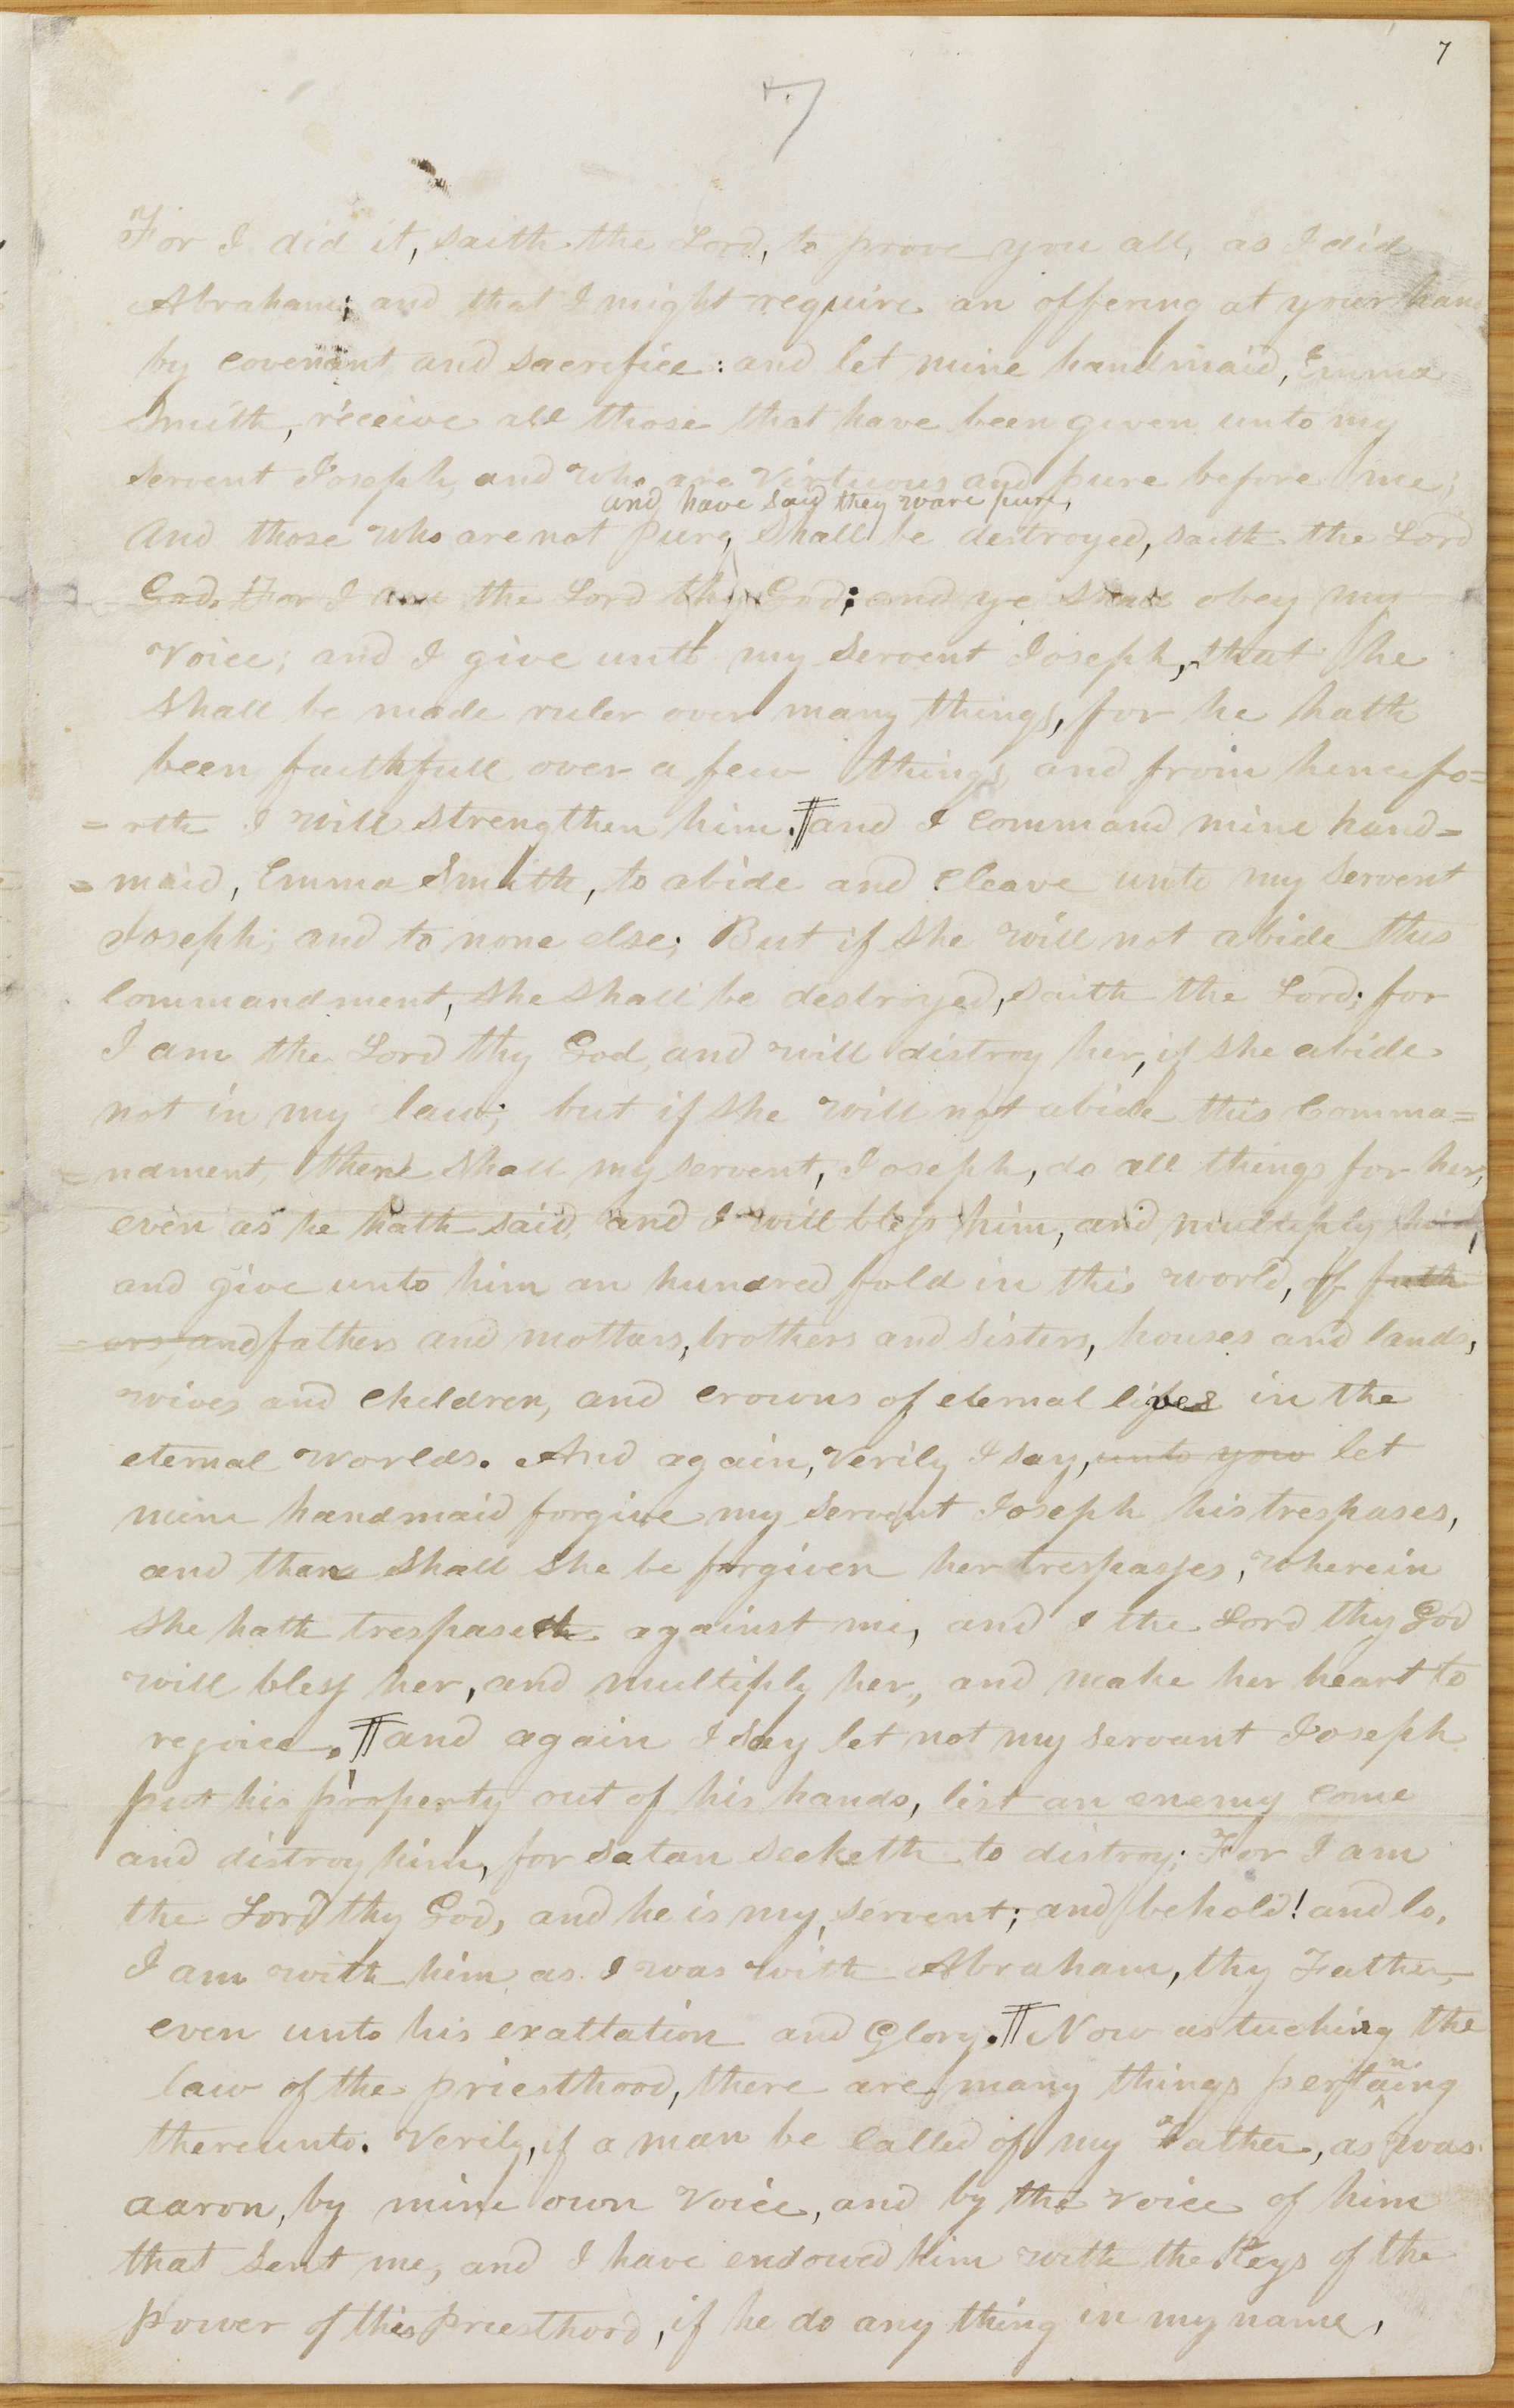 7
7
For I did it, saith the Lord, to prove you all, as I did
Abraham; and that I might require an offering at your hand
by covenant and sacrifice: and let mine handmaid, Emma
Smith, receive all those that have been given unto my
Servent Joseph, and who are virtuous and pure before me;
and have said they ware pure,
And those who are not pure, shall be destroyed, saith the Lord
God. For I am the Lord thy God; and ye shall obey my
voice; and I give unto my Servent Joseph, that he
shall be made ruler over many things, for he hath
been faithfull over a few things, and from hencefo=
=rth I will strengthen him. ¶ and I command mine hand=
=maid, Emma Smith, to abide and cleave unto my Servent
Joseph, and to none else; But if she will not abide this
commandment, she shall be destroyed, saith the Lord; for
I am the Lord thy God, and will distroy her, if she abide
not in my law; but if she will not abide this comma=
=ndment, then shall my servent, Joseph, do all things for her,
even as he hath said, and I will bless him, and multiply him,
and give unto him an hundred fold in this world, of fath
=ers, and fathers and mothers, brothers and sisters, houses and lands,
wives and children, and crowns of eternal lives in the
eternal worlds. And again, verily I say, unto you let
mine handmaid forgive my servent Joseph his trespases,
and then shall she be forgiven her trespasses, wherein
she hath trespased against me, and I the Lord thy God
will bless her, and multiply her, and make her heart to
rejoice. ¶ and again I say let not my servant Joseph
put his property out of his hands, lest an enemy come
and distroy him, for satan seeketh to distroy; For I am
the Lord thy God, and he is my servent; and behold! and lo,
I am with him as I was with Abraham, thy Father,
even unto his exaltation and Glory. ¶ Now as tuching the
law of the priesthood, there are many things pertaining
thereunto. Verily, if a man be called of my Father, as was
aaron, by mine own voice, and by the voice of him
that sent me, and I have endowed him with the Keys of the
power of this Priesthood, if he do any thing in my name,